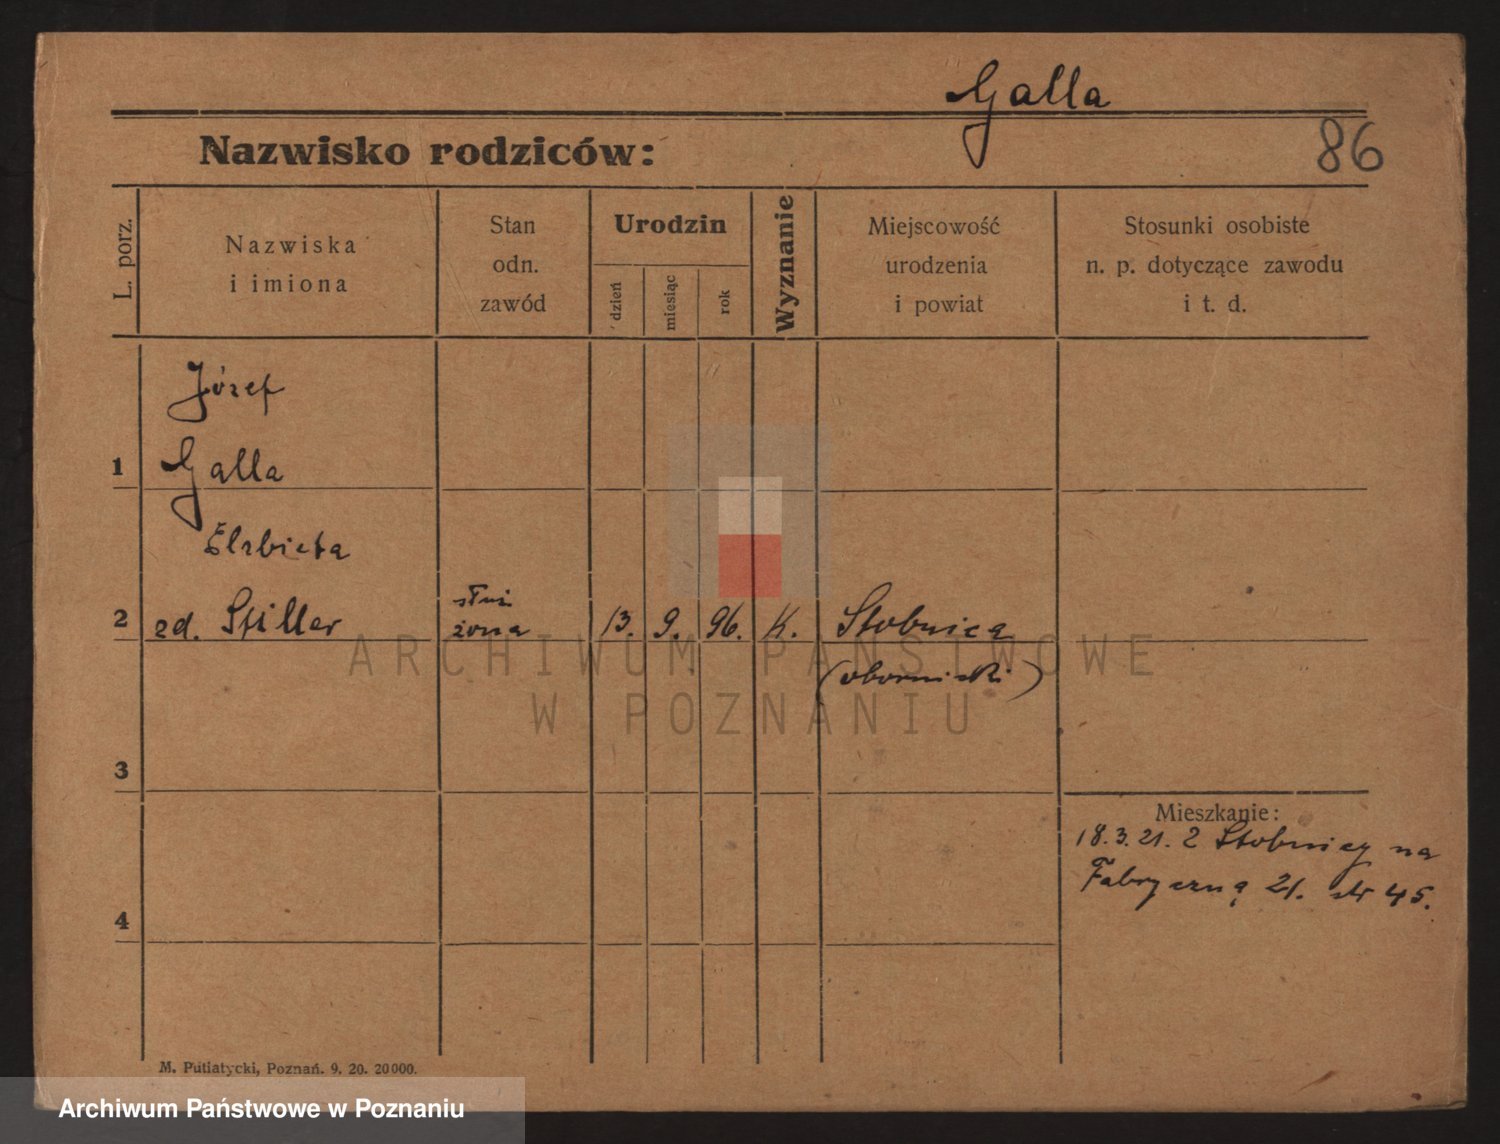 Galla
Nazwisko rodziców:
86
L. porz.
Nazwiska
i imiona
Stan
odn.
zawód
Urodzin
dzień
miesiąc
rok
Wyznanie
Miejscowość
urodzenia
i powiat
Stosunki osobiste
n. p. dotyczące zawodu
i t. d.
Józef
1 Galla
Elzbieta
2 zd. Stiller żona 13. 9. 96. K. Stobnica
(obornicki)
3
Mieszkanie:
18.3.21. z Stobnicy na
Fabryczną 21. str 45.
4
M. Putiatycki, Poznań. 9. 20. 20000.
ARCHIWUM PAŃSTWOWE
W POZNANIU
Archiwum Państwowe w Poznaniu